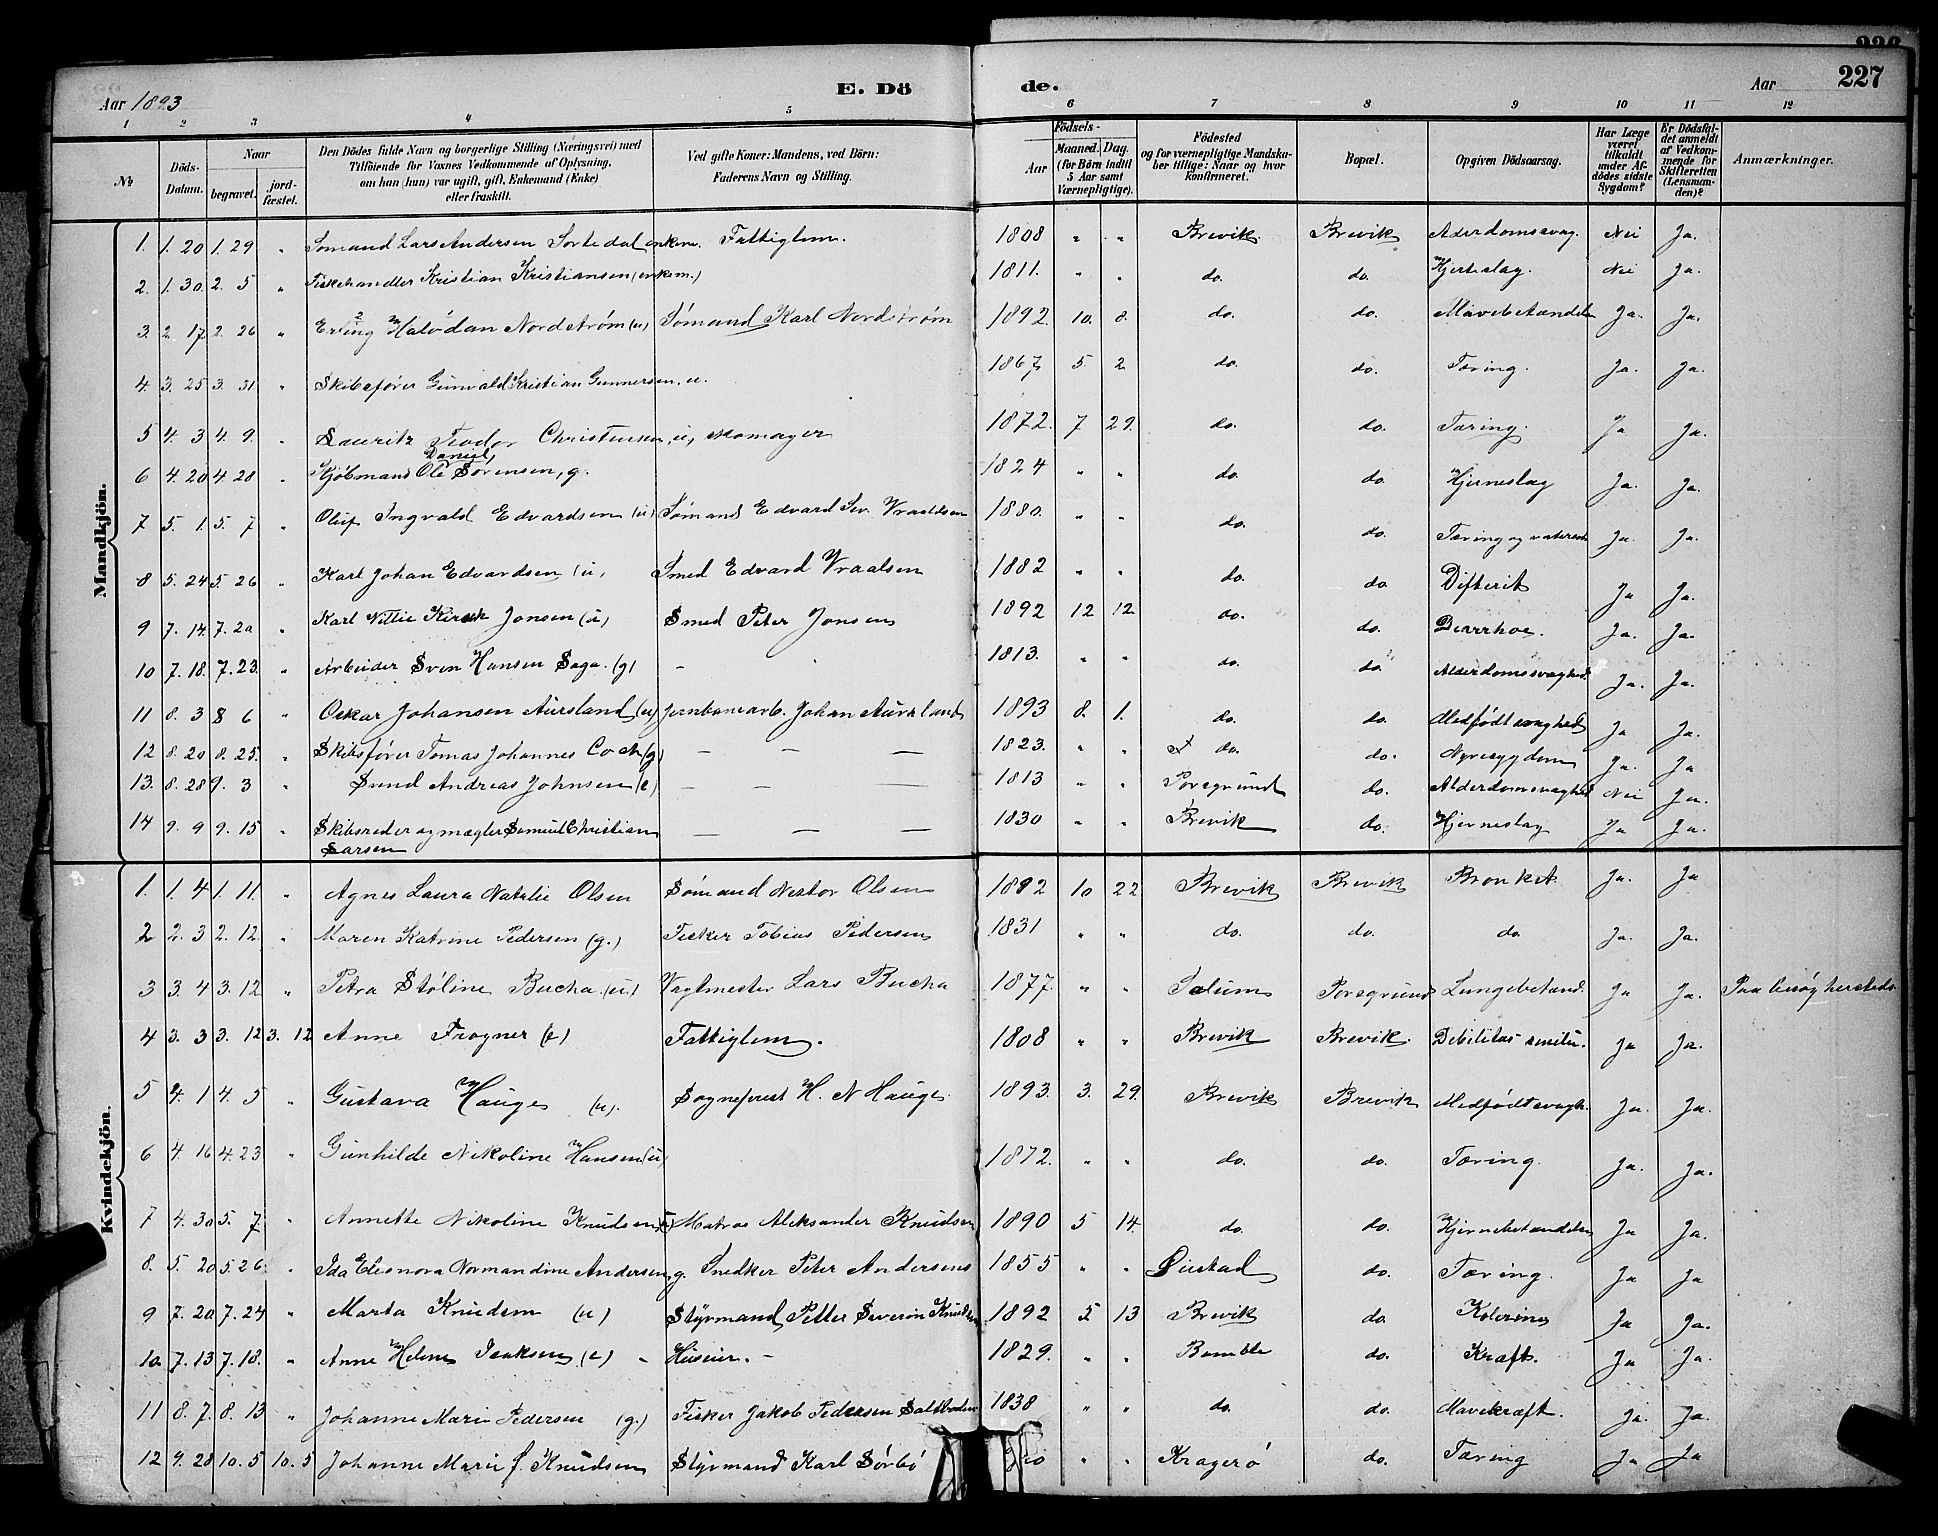 Aar 1893
E. Dö
de.
Aar
227
1 2 3 4 5 6 7 8 9 10 11 12
№
Döds-Datum.
Naar begravet. jordfæstet.
Den Dödes fulde Navn og borgerlige Stilling (Næringsvei) med Tilföiende for Voxnes Vedkommende af Oplysning, om han (hun) var ugift, gift, Enkemand (Enke) eller fraskilt.
Ved gifte Koner: Mandens, ved Börn: Faderens Navn og Stilling.
Födsels- Aar Maaned. Dag. (for Börn indtil 5 Aar samt Værnepligtige).
Födested og for værnepligtige Mandskaber tillige: Naar og hvor konfirmeret.
Bopæl.
Opgiven Dödsaarsag.
Har Læge været tilkaldt under Afdödes sidste Sygdom?
Er Dödsfaldet anmeldt af Vedkommende for Skifteretten (Lensmanden)?
Anmærkninger.
Mandkjön.
1. 1. 20 1. 29 " Sömand Lars Andersen Sortedal enkem. Fattiglem. 1808 " " Brevik Brevik Alderdomssvag. Nei Ja.
2. 1. 30 2. 5 " Fiskehandler Kristian Kristiansen (enkem.) 1811. " " do. do. Hjerteslag. Nei Ja.
3. 2 17 2. 26 " Erling Halvdan Nordström (u) Sömand Karl Nordström 1892 10. 8. do. do. Mavebetændel Ja. Ja.
4. 3. 25 3. 31 " Skibsförer Gunvald Kristian Gunnersen, u. 1867 5 2 do. do. Tæring. Ja. Ja.
5 4. 3 4. 9. " Lauritz Teodor Christensen, u, skomager 1872. 7 29. do. do. Tæring. Ja Ja.
6 4. 20 4. 28 " Kjöbmand Ole Daniel Sörensen, g. 1824 " " do. do. Hjerneslag Ja. Ja.
7 5. 1. 5. 7 " Oluf Ingvald Edvardsen (u) Sömand Edvard Sev. Vraaldsen 1880. " " do. do. Tæring og Ja Ja.
8 5. 24 5. 26 " Karl Johan Edvardsen (u) Smed Edvard Vraalsen 1882 " " do. do. Difterit Ja Ja.
9 7. 14. 7. 20 " Karl Jonsen (u) Smed Peter Jonsen 1892 12 12 do. do. Diarrhoe. Ja. Ja.
10 7. 18. 7. 23. " Arbeider Sven Hansen Saga. (g) - 1813. " " do. do. Alderdomssvaghed. Ja. Ja.
11 8. 3 8 6 " Oskar Johansen Aursland (u) Jernbanearb. Johan Aursland 1893 8. 1. do. do. Medfödt svaghed Ja Ja.
12 8. 20 8. 25. " Skibsförer Tomas Johannes Cock (g) — — — 1823. " " do. do. Nyresygdom Ja. Ja
13. 8. 28 9. 3 " Svend Andreas Johnsen (e) — — — 1813 " " Porsgrund do. Alderdomssvaghed Nei Ja.
14 9. 9 9. 15 " Skibsreder og mægler Samuel Christian Larsen — — — 1830 " " Brevik do. Hjerneslag Ja Ja.
Kvindekjön.
1. 1. 4 1. 11. " Agnes Laura Natalie Olsen Sömand Nestor Olsen 1892 10 22 Brevik Brevik Bronkit. Ja. Ja
2 2. 3 2. 12. " Maren Katrine Pedersen (g.) Fisker Tobias Pedersen 1831 " " do. do. do. Ja. Ja.
3 3. 4 3. 12 " Petra Stöline Bucha (u) Vagtmester Lars Bucha 1877. " " Solum Porsgrund Lungebetænd. Ja Ja. Paa besög hersteds.
4 3. 3 3. 12 3. 12 Anne Frogner (e) Fattiglem. 1808 " " Brevik Brevik. Debilitas senilis. Ja Ja.
5 4. 1 4. 5 " Gustava Hauge (u). Sogneprest H. N Hauge. 1893. 3. 29. Brevik Brevik Medfödt svagh. Ja. Ja.
6 4. 16 4. 23 " Gunhilde Nikoline Hansen (u) 1872. " " do. do. Tæring. Ja. Ja.
7 4. 30 5. 7 " Annette Nikoline Knudsen Matros Aleksander Knudsen 1890 5 14. do. do. Hjernebetændelse Ja Ja.
8. 5. 20 5. 26 " Ida Eleonora Normandine Andersen, g. Snedker Peter Andersens 1855 " " Öiestad do. Tæring. Ja Ja
9 7. 20 7. 24 " Marta Knudsen (u) Styrmand Petter Severin Knudsen 1892 5 13 Brevik do. Kolerine Ja Ja.
10. 7. 13 7. 18. " Anne Helene Isaksen (e) " Huseier. - 1829. " " Bamble do. Kræft. Ja Ja.
11 8. 7. 8. 13 " Johanne Marie Pedersen (g.) Fisker Jakob Pedersen Saltboden 1838 " " do. do. Mavekræft. Ja. Ja.
12 9. 28 10. 5 10. 5 Johanne Marie f. Knudsen Styrmand Karl Sörbö " " Kragerö do. Tæring Ja Ja